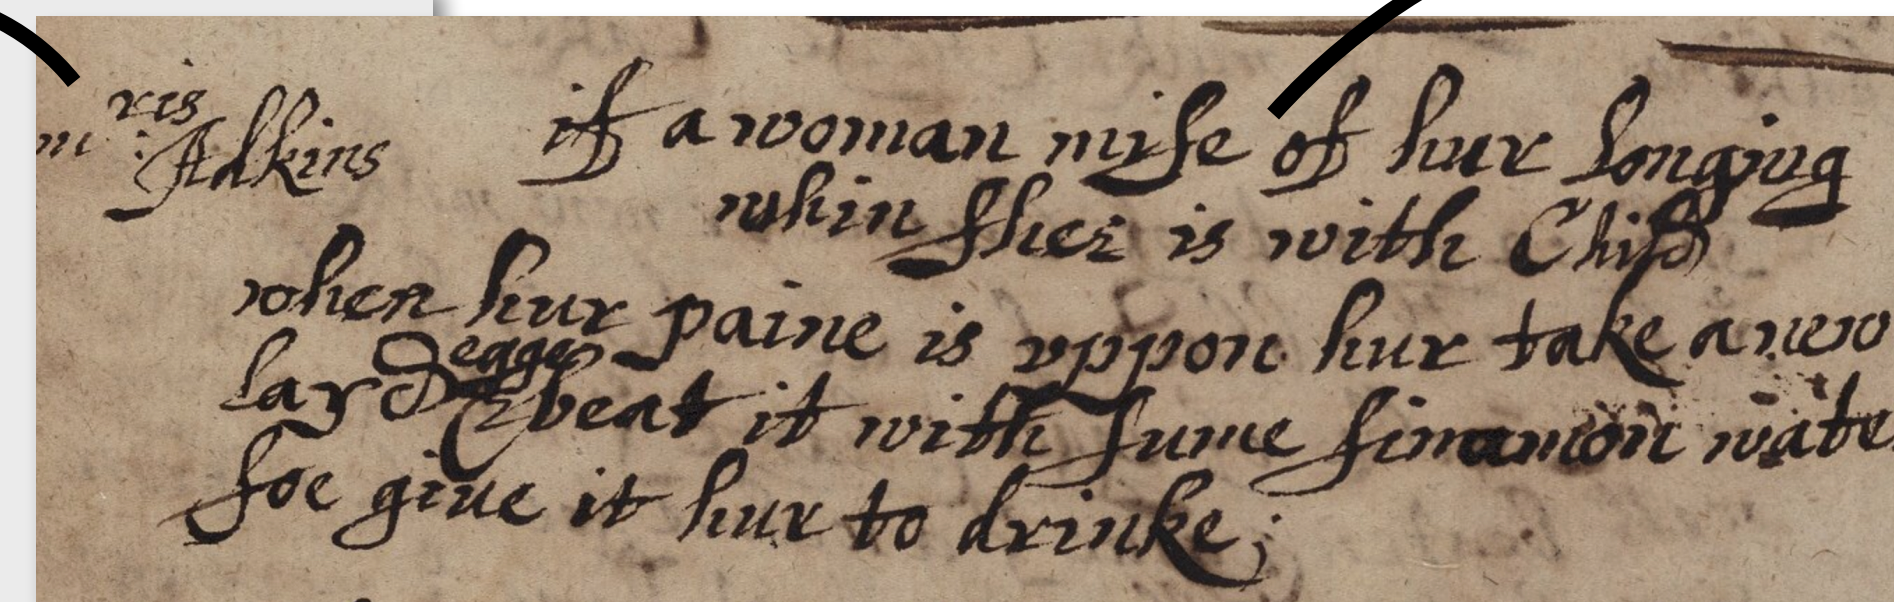 m ris
Adkins
if a woman mise of hur longing
whin shee is with Child
when hur paine is vppon hur take a new
layd egge & beat it with sume sinamon wate
soe giue it hur to drinke;